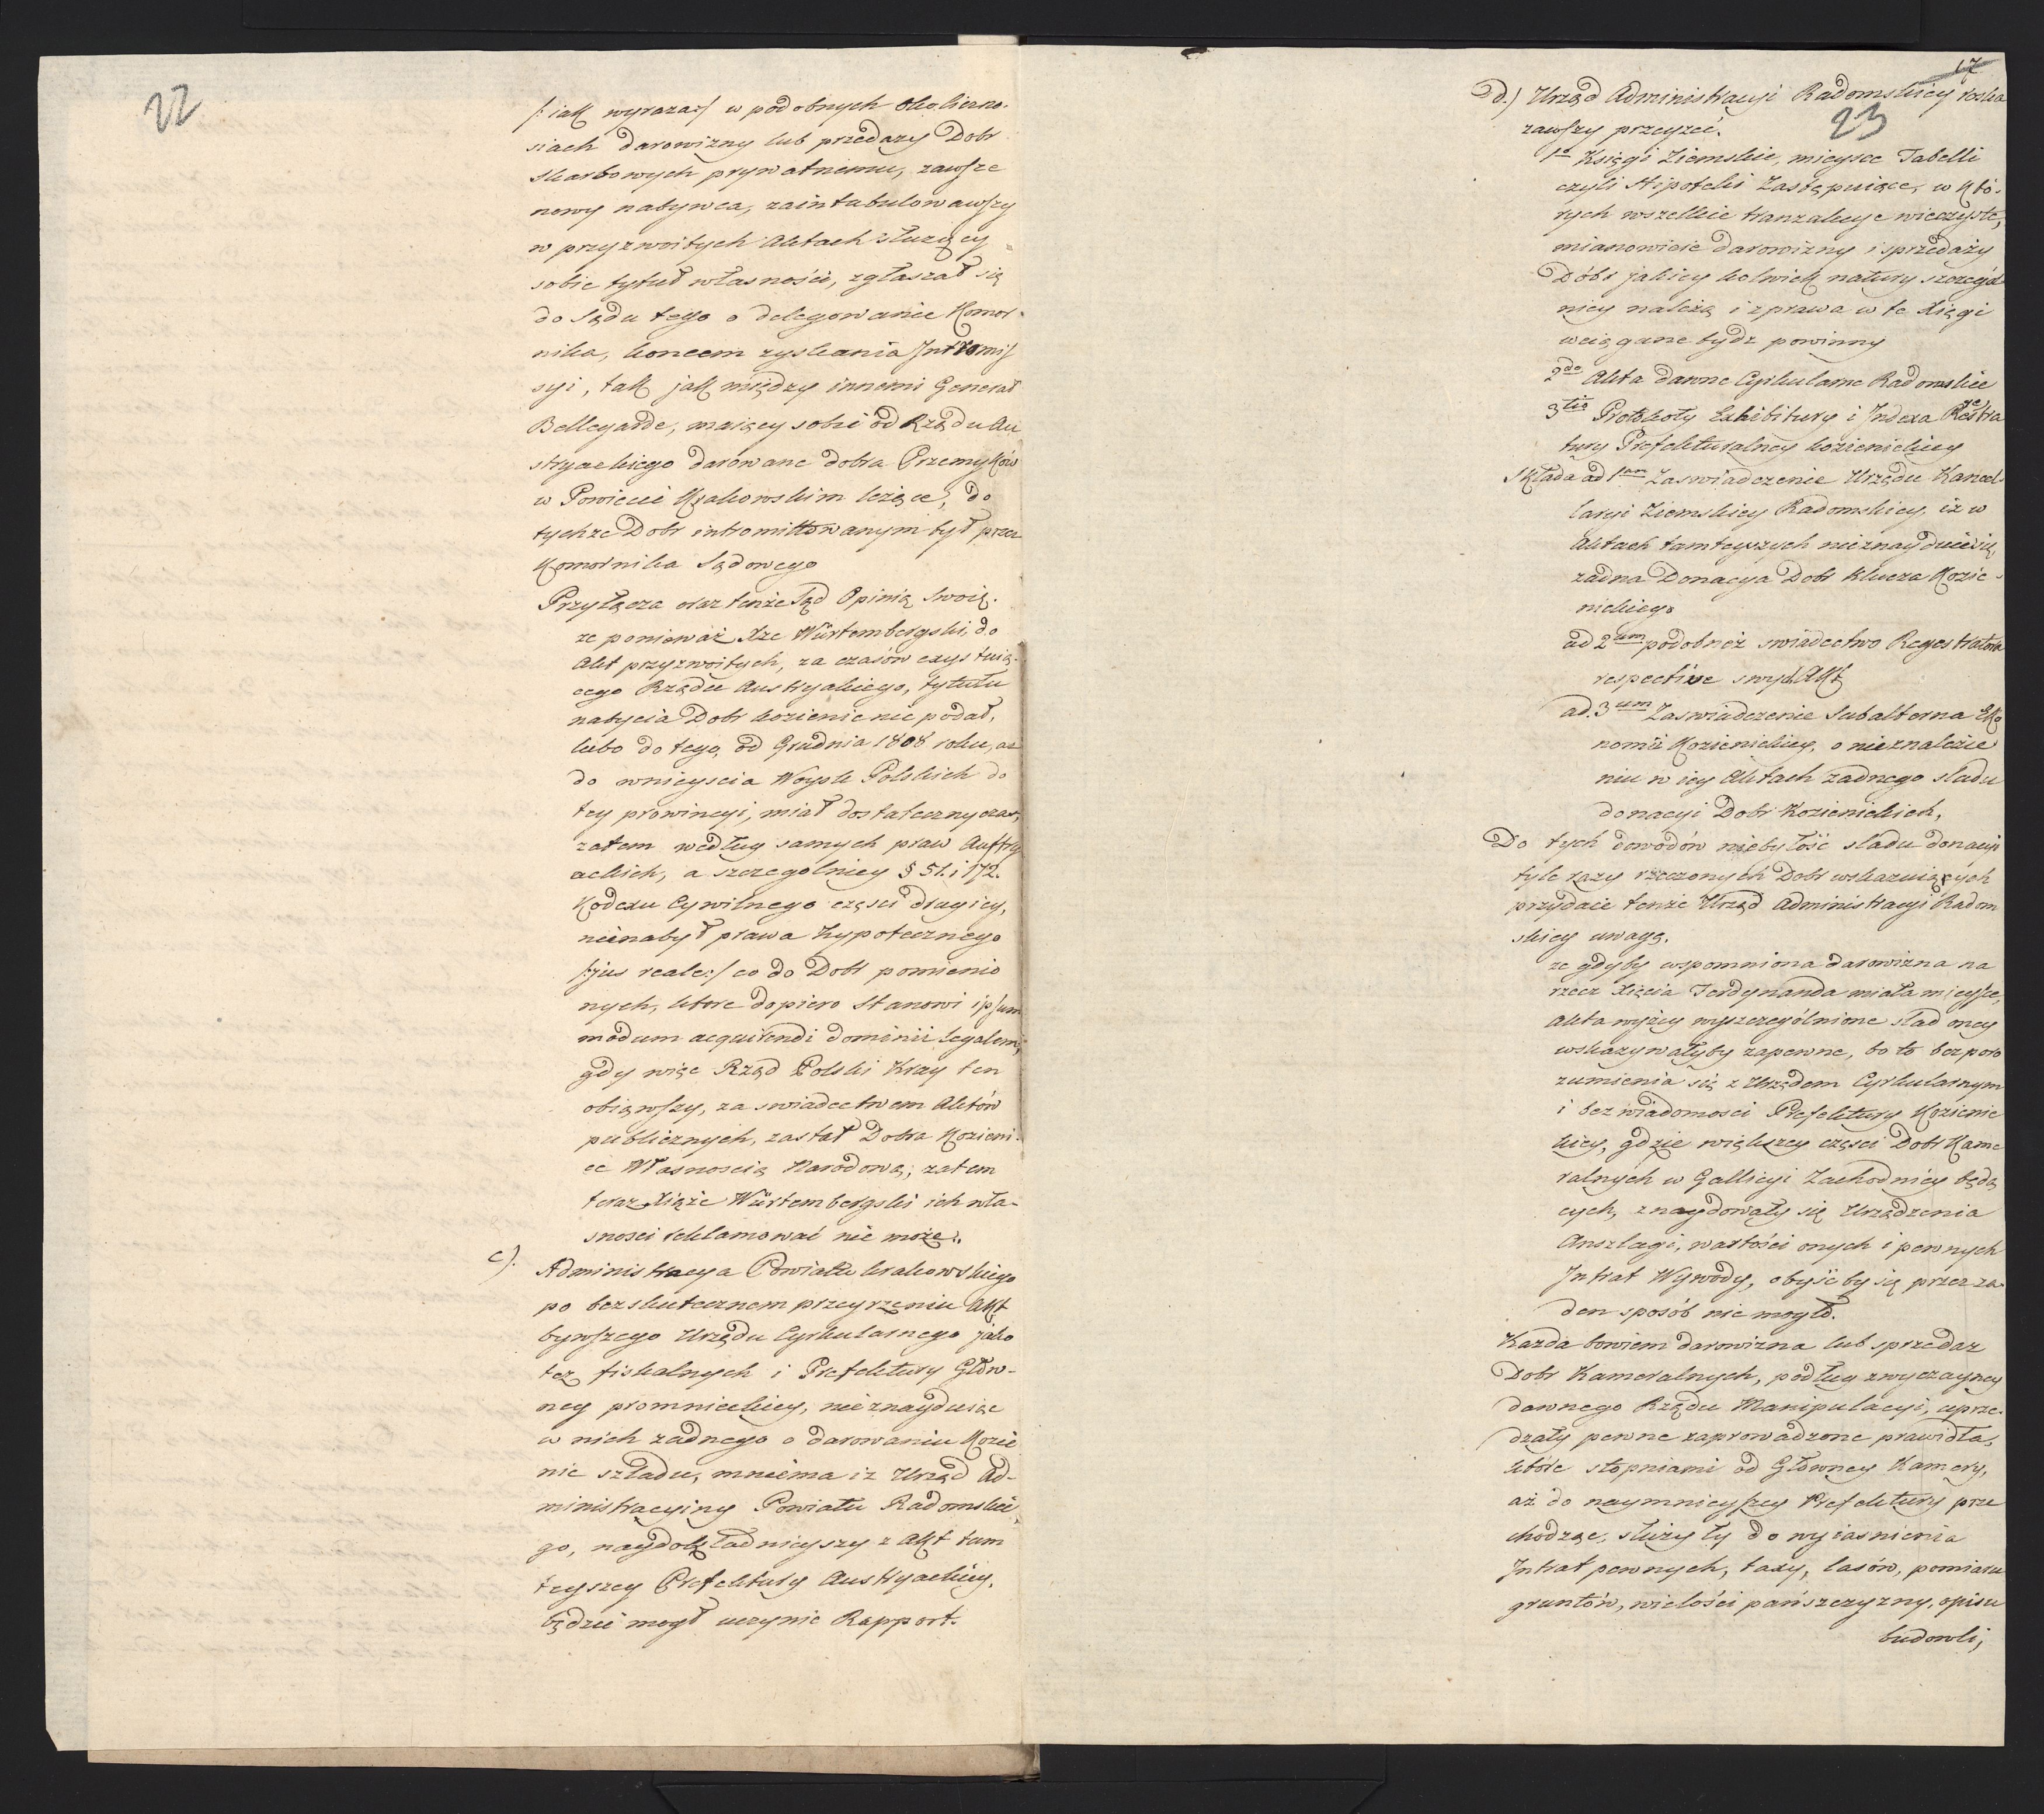 22
/:iak wyraza:/ w podobnych okoliczno-
siach darowizny lub przedazy Dobr
skarbowych prywatnemu, zawsze
nowy nabywca, zaintabulowawszy
w przyzwoitych Aktach słuzący
sobie tytuł własności, zgłaszał się
do Sądu tego o delegowanie Komor-
nika, koncem zyskania Intromis-
syi, tak jak między innemi Generał
Bellegarde, maiący sobie od Rządu Au
stryackiego darowane dobra Przemyków
w Powiecie Krakowskim leżące, do
tychze Dobr intromittowanym był przez
Komornika Sądowego
Przyłącza oraz tenże Sąd Opinię swoię.
ze ponieważ Xze Würtembergski, do
Akt przyzwoitych, za czasów exystuią-
cego Rządu Austryackiego, tytułu
nabycia Dobr kozienic nie podał,
lubo do tego, od Grudnia 1808 roku, az
do wnieyscia Woysk Polskich do
tey prowincyi, miał dostateczny czas,
zatem według samych praw Austry
ackich, a szczegolniey § 51. i 172.
Kodexu Cywilnego części drugiey,
nienabył prawa hypotecznego
/:jus reale:/ co do Dobr pomienio
nych, ktore dopiero stanowi ipsum
modum acquirendi dominii legalem,
gdy więc Rząd Polski Kray ten
obiąwszy, za swiadectwem Aktów
publicznych, zastał Dobra Kozieni-
ce Własnoscią Narodową; zatem
teraz Xiąże Würtembergski ich wła-
snosci reklamować nie może.,
c). Administracya Powiatu krakowskiego
po bezskutecznem przeyrzeniu Akt
bywszego Urzędu Cyrkularnego jako
tez fiskalnych i Prefektury Głów-
ney promnickiey, nieznayduiąc
w nich zadnego o darowaniu Kozie
nic szladu, mniema iz Urząd Ad-
ministracyiny Powiatu Radomskie-
go, naydokładnieyszy z Akt tam
teyszey Prefektury Austryackiey,
będzie mogł uczynic Rapport.
17
23
d.) Urząd Administracyi Radomskiey roska
zawszy przeyzeć.
1o Księgi Ziemskie, mieysce Tabelli
czyli Hipoteki Zastępuiące, w któ-
rych wszelkie tranzakcye wieczyste,
mianowicie darowizny i sprzedaży
Dóbr jakiey kolwiek natury szczegól
niey należą i z prawa w te Xięgi
wciągane bydz powinny
2do Akta dawne Cyrkularne Radomskie
3tio Protokoły Exhibitury i Indexa Regestra
tury Prefekturalney kozienickiey
Składa ad 1um Zaswiadczenie Urzędu Kancel-
laryi Ziemskiey Radomskiey, iż w
Aktach tamteyszych nieznayduie się,
zadna Donacya Dobr klucza Kozie-
nickiego
ad 2um podobnież swiadectwo Regestratora
respective swych Akt
ad. 3um Zaswiadczenie Subalterna Eko
nomii Kozienickiey, o nieznalezie
niu w iey Aktach zadnego sladu
donacyi Dobr Kozienickich,
Do tych dowodów niebyłość sladu donacyi
tyle razy rzeczonych Dobr wskazuiących
przydaie tenże Urząd Administracyi Radom
skiey uwagę.
ze gdyby wspomniona darowizna na
rzecz Xięcia Ferdynanda miała mieysce,
Akta wyżey wyszczególnione slad oney
wskazywałyby zapewne, bo to bez poro
zumienia się z Urzędem Cyrkularnym
i bez wiadomosci Prefektury Kozienic
kiey, gdzie większey części Dobr Kame
ralnych w Gallicyi Zachodniey będą
cych, znaydowały się Urządzenia
Anszlagi, wartości onych i pewnych
Intrat Wywody, obyśćby się przez ża-
den sposób nie mogło.
Kazda bowiem darowizna lub sprzedaz
Dobr Kameralnych, podług zwyczayney
dawnego Rządu Manipulacyi, uprze-
dzały pewne zaprowadzone prawidła,
które stopniami od Głowney Kamery,
aż do naymnieyszey Prefektury prze
chodząc, służyły do wyiasnienia
Intrat pewnych, taxy, lasów, pomiaru
gruntów, wielości pańszczyzny, opisu
budowli,